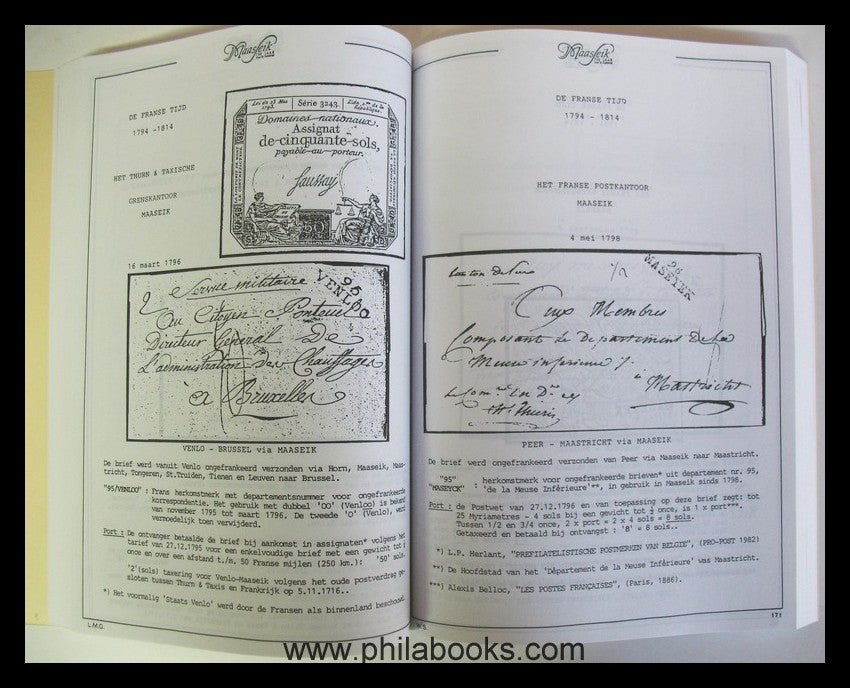 Maaseik
DE FRANSE TIJD
1794 -1814
Loi du 23 Mai 1793.
Série 3243.
L'An 2e de la République.
Domaines nationaux.
Assignat
de cinquante sols,
payable au porteur.
Saussay
50
HET THURN & TAXISCHE
GRENSKANTOOR
MAASEIK
16 maart 1796
2 Service militaire
95
VENLOO
Au Citoyen Ponteuil
Directeur Général De
L'administration des Chauffages
à Bruxelles
VENLO - BRUSSEL via MAASEIK
De brief werd vanuit Venlo ongefrankeerd verzonden via Horn, Maaseik, Maas-
tricht, Tongeren, St.Truiden, Tienen en Leuven naar Brussel.
"95/VENLOO" : Frans herkomstmerk met departementsnummer voor ongefrankeerde
korrespondentie. Het gebruik met dubbel 'OO' (Venloo) is bekend
van november 1795 tot maart 1796. De tweede 'O' (Venlo), werd
vermoedelijk toen verwijderd.
Port : De ontvanger betaalde de brief bij aankomst in assignaten* volgens het
tarief van 27.12.1795 voor een enkelvoudige brief met een gewicht tot ½
once en over een afstand t./m. 50 Franse mijlen (250 km.): '50' sols.
'2'(sols) taxering voor Venlo-Maaseik volgens het oude postverdrag ge-
sloten tussen Thurn & Taxis en Frankrijk op 5.11.1716..
*) Het voormalig 'Staats Venlo' werd door de Fransen als binnenland beschouwd.
L.M.G.
Maaseik
DE FRANSE TIJD
1794 -1814
HET FRANSE POSTKANTOOR
MAASEIK
4 mei 1798
Canton de
1/2
95
MASEIEK
Aux Membres
Composant le Departement de la
Meuse inferieure /.
à Mastricht
PEER - MAASTRICHT via MAASEIK
De brief werd ongefrankeerd verzonden van Peer via Maaseik naar Maastricht.
"95" herkomstmerk voor ongefrankeerde brieven* uit departement nr. 95,
"MASEYCK" : 'de la Meuse Inférieure'**, in gebruik in Maaseik sinds 1798.
Port : de Postwet van 27.12.1796 en van toepassing op deze brief zegt: tot
25 Myriametres - 4 sols bij een gewicht tot ½ once, is 1 x port***.
Tussen 1/2 en 3/4 once, 2 x port = 2 x 4 sols = 8 sols.
Getaxeerd en betaald bij ontvangst : '8' = 8 sols..
*) L.P. Herlant, "PREFILATELISTISCHE POSTMERKEN VAN BELGIE", (PRO-POST 1982)
**) De Hoofdstad van het 'Département de la Meuse Inférieure' was Maastricht.
***) Alexis Belloc, "LES POSTES FRANÇAISES", (Paris, 1886).
171
www.philabooks.com